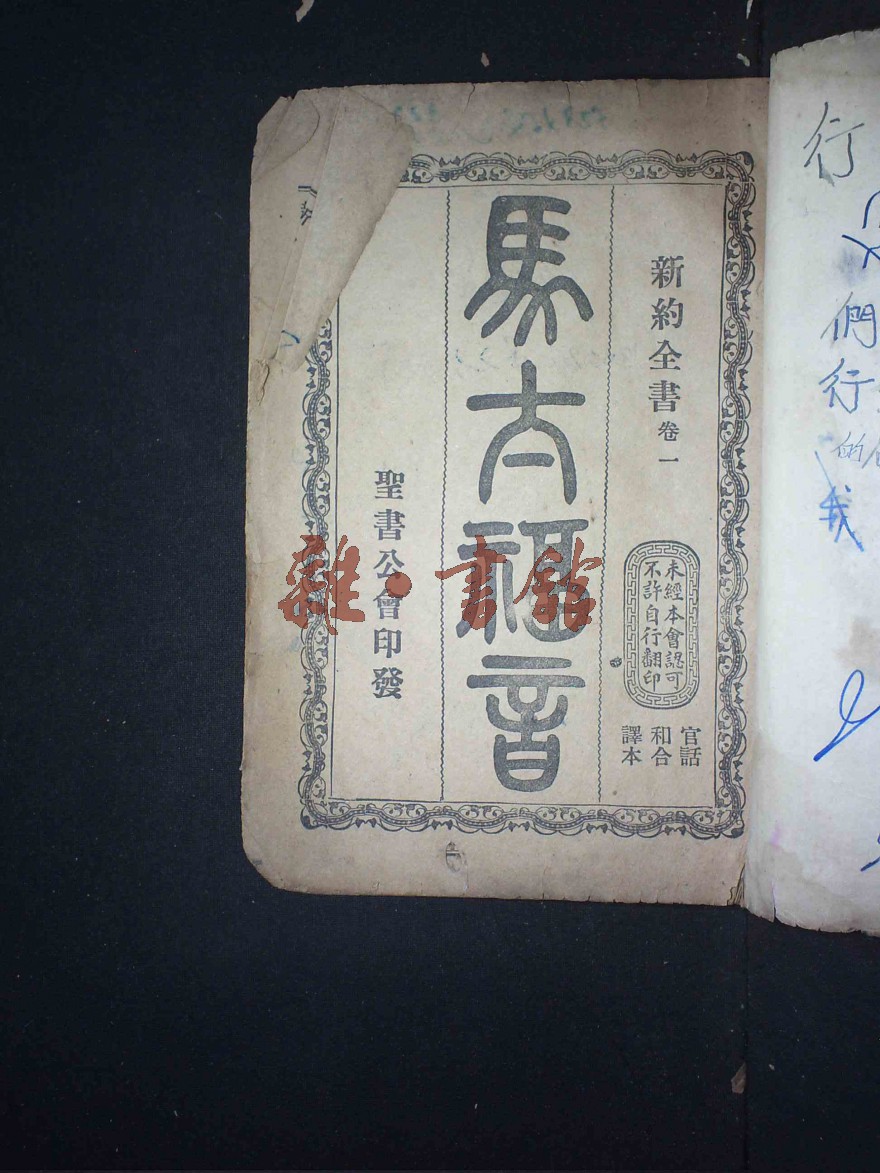 新約全書 卷一
未經本會認可
不許自行翻印
官話
和合
譯本
馬太福音
聖書公會印發
雜·書館
行
們
行
的
我